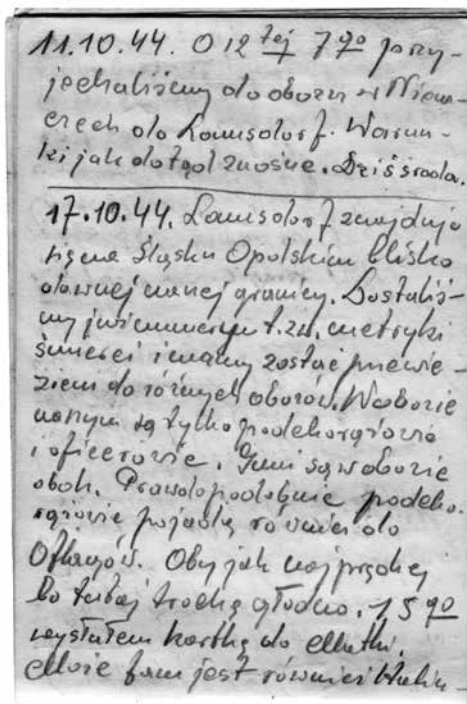 11.10.44. O 12 tej 7go przy-
jechaliśmy do obozu w Niem-
czech do Lamsdorf. Warun-
ki jak dotąd znośne. Dziś środa.
17.10.44. Lamsdorf znajduje
się na Śląsku Opolskim blisko
dawnej naszej granicy. Dostaliś-
my już numery t.zw. metryki
śmierci i mamy zostać przewie-
zieni do różnych obozów. W obozie
naszym są tylko podchorążowie
i oficerowie. Inni są w obozie
obok. Prawdopodobnie podcho-
rążowie pojadą również do
Oflagów. Oby jak najprędzej
bo tutaj trochę głodno. 15go
wysłałem kartkę do Matki.
może jest również